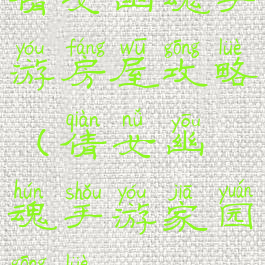 倩女幽魂手
yóu fáng wū gōng lüè
游房屋攻略
qiàn nǚ yōu
(倩女幽
hún shǒu yóu jiā yuán
魂手游家园
gōng lüè